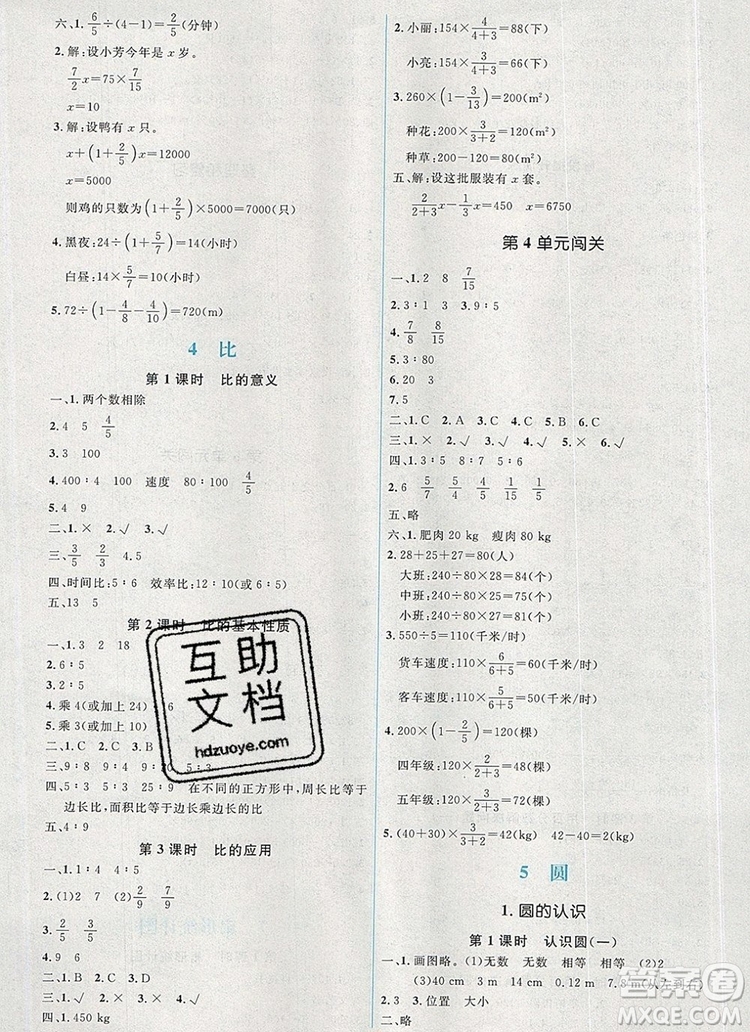 六、1. 6/5÷(4-1)=2/5(分钟)
2.解:设小芳今年是 x 岁。
7/2x=75×7/15
x=10
3.解:设鸭有 x 只。
x+(1+2/5)x=12000
x=5000
则鸡的只数为(1+2/5)×5000=7000(只)
4.黑夜:24÷(1+5/7)=14(小时)
白昼:14×5/7=10(小时)
5.72÷(1-4/8-4/10)=720(m)
4 比
第 1 课时 比的意义
一、1.两个数相除
2.4 5 4/5
3.3 100
4.400:4 100 速度 80:100 4/5
5.4 9
二、1.× 2.√ 3.√
三、3/5 2/3 4/5
四、时间比:5:6 效率比:12:10(或 6:5)
五、13 5
第 2 课时 比的基本性质
一、1.3 2 18
2.6:5
3.6:2
4.乘 4(或加上 24) 6
5.乘 3(或加上 10)
二、1.C 2.C 3.B
三、9:8 9:10 9:2 5:3
四、5:3 5:3 25:9 在不同的正方形中,周长比等于
边长比,面积比等于边长乘边长的比
五、4:9
第 3 课时 比的应用
一、1.1:4
2.(1)2 (2)
3.
4.9 6
二、1.C 2.D 3.C
三、1.√ 2.× 3.×
四、1.450 kg
2.小丽:154×4/(4+3)=88(下)
小亮:154×3/(4+3)=66(下)
3.260×(1-3/13)=200(m²)
种花:200×3/(3+2)=120(m²)
种草:200-120=80(m²)
五、解:设这批服装有 x 套。
2/(2+3)x-1/3x=450 x=6750
第 4 单元闯关
一、1.2 8 7/15
2.3:1 3 3.9:5
4.7/8 8/15
5.2:3 6.3:80
7.5
二、1.C 2.A 3.C 4.C 5.B 6.C
三、1.× 2.√ 3.× 4.× 5.√ 6.√
四、1.3:5 8:7 5:6
2.6 5/7 5/4 4/5 2/5
五、略
六、1.肥肉 20 kg 瘦肉 80 kg
2.28+25+27=80(人)
大班:240÷80×28=84(个)
中班:240÷80×25=75(个)
小班:240÷80×27=81(个)
3.550÷5=110(千米/时)
货车速度:110×5/(6+5)=50(千米/时)
客车速度:110×6/(6+5)=60(千米/时)
4.200×(1-2/5)=120(棵)
四年级:120×2/(2+3)=48(棵)
五年级:120×3/(2+3)=72(棵)
5.(40+30)×3/(3+2)=42(kg) 42-40=2(kg)
5 圆
1.圆的认识
第 1 课时 认识圆(一)
一、1.画图略。(1)无数 无数 相等 相等 (2)2
(3)40 cm 3 m 14 cm 7.8 m(从左到右)
2.3 3.位置 大小
二、略
互助
文档
hdzuoye.com
答案圈
MXQE.COM